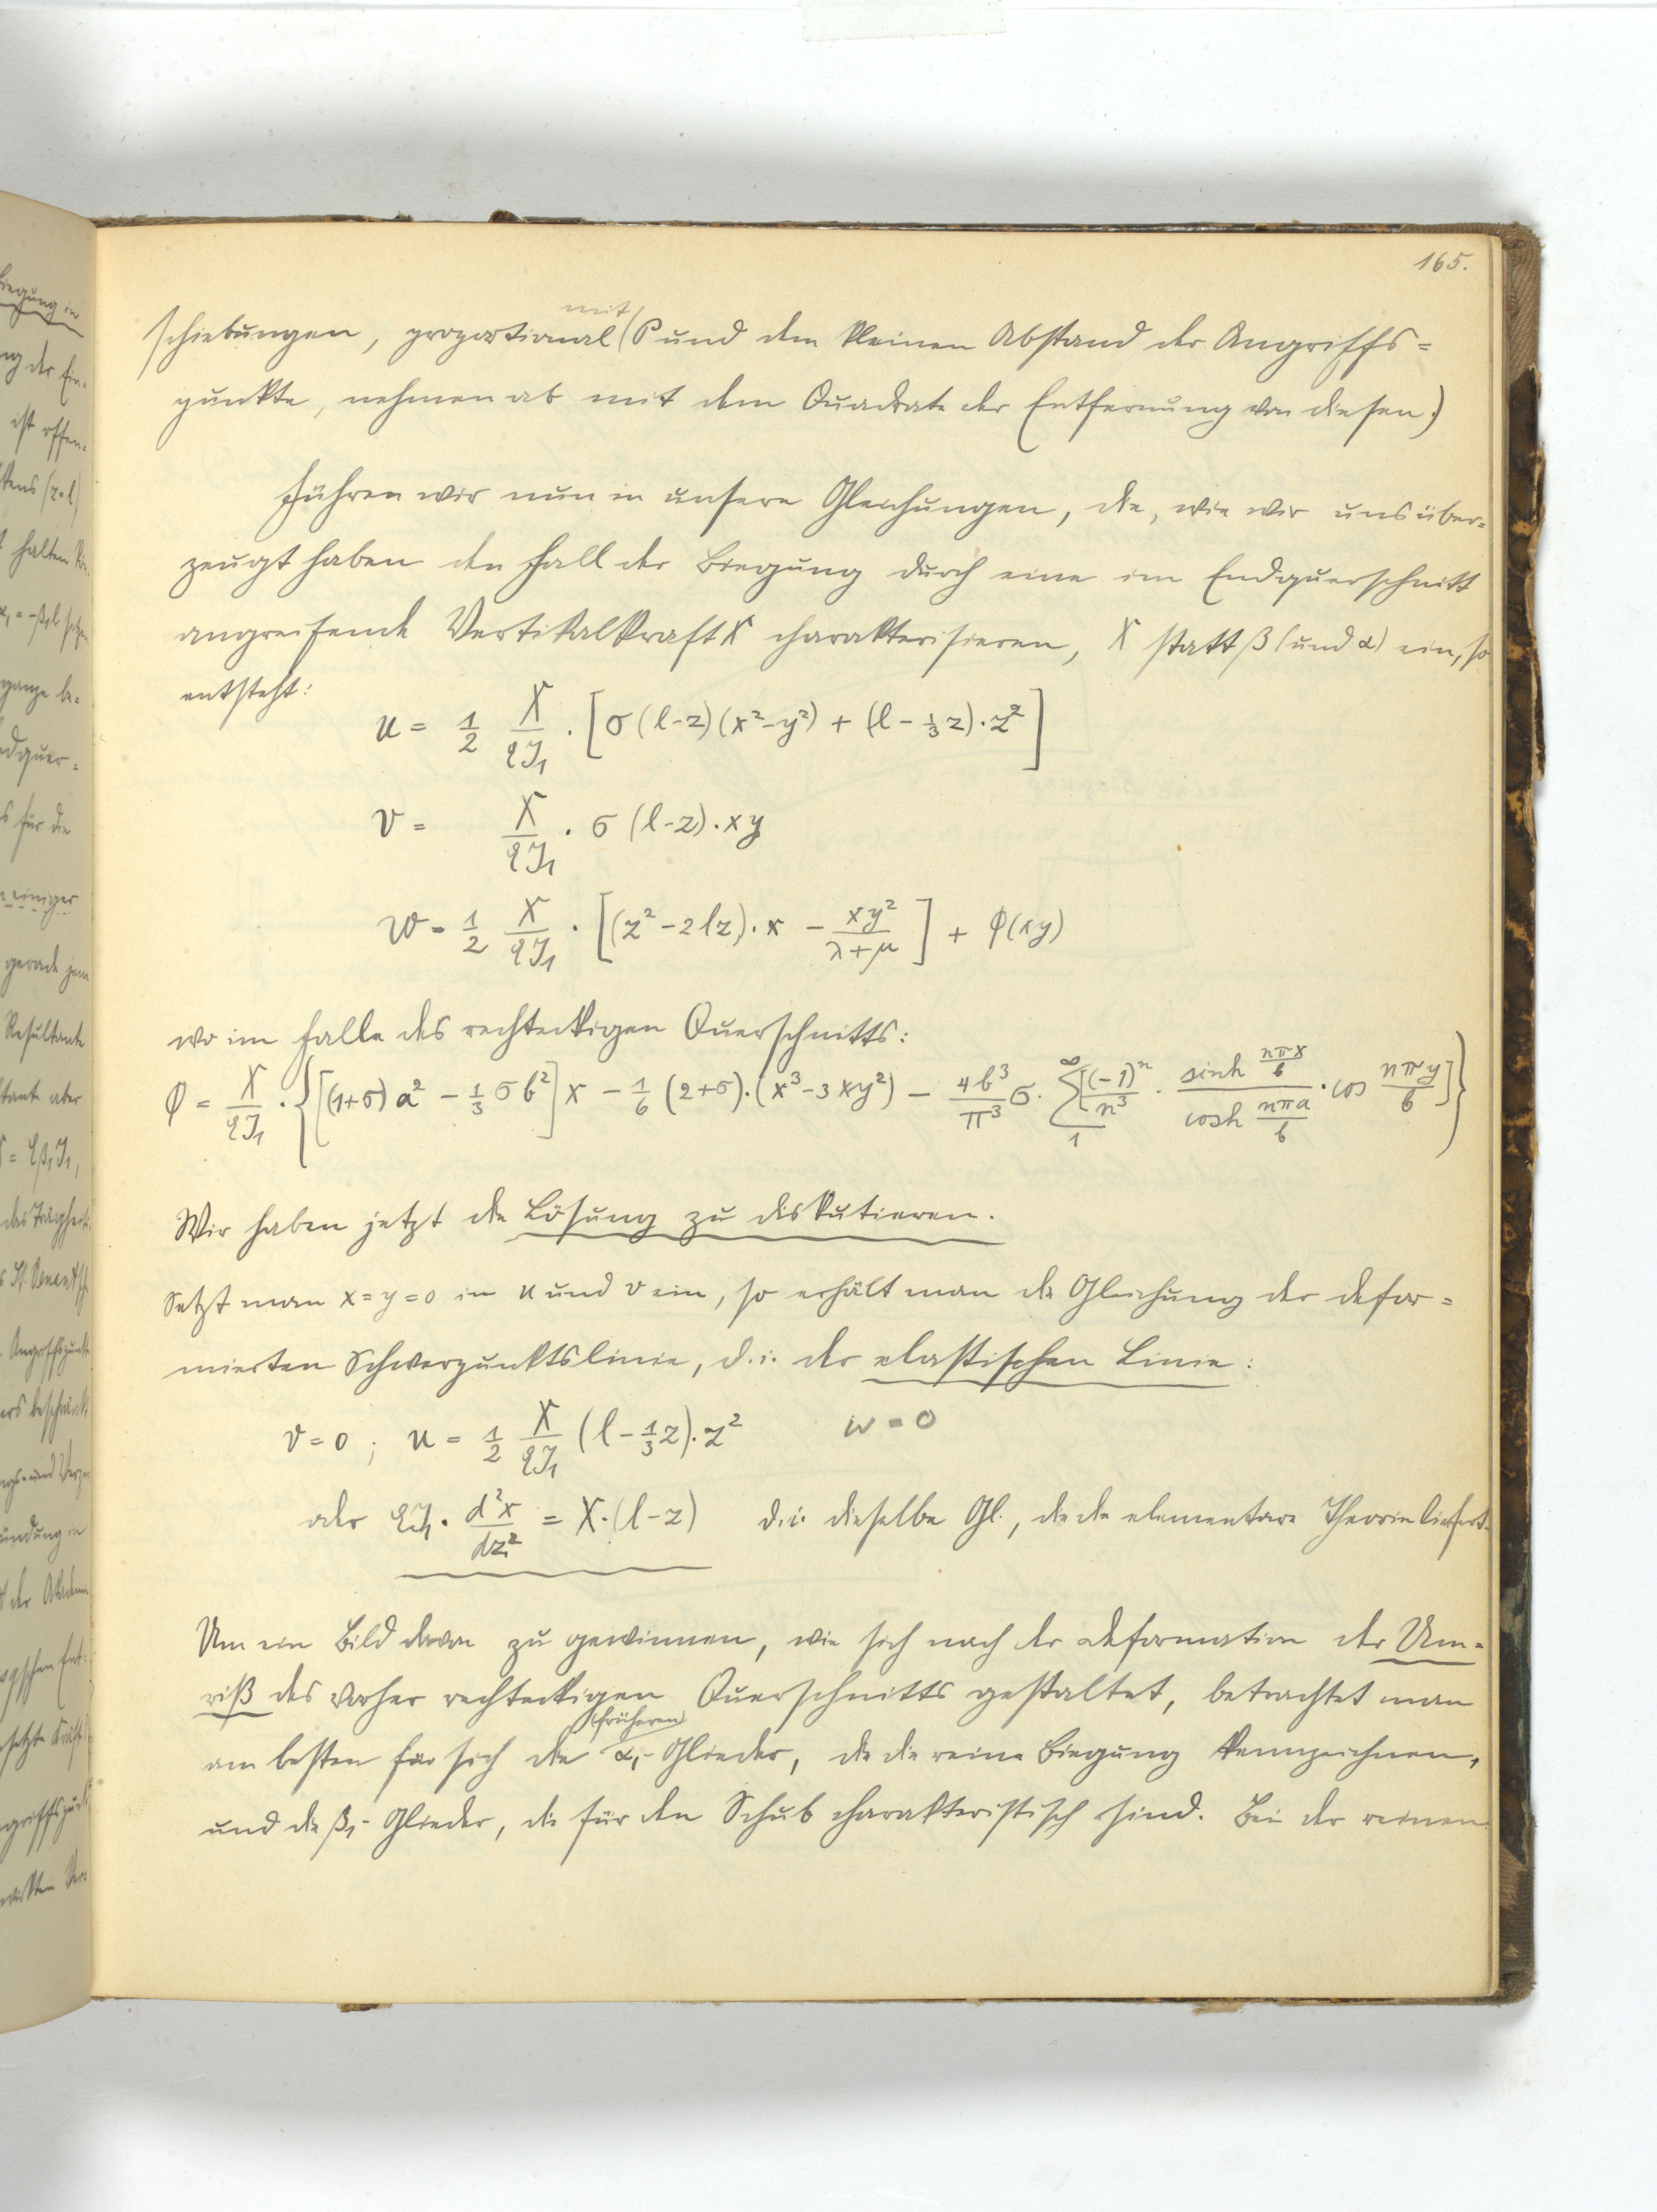 165.
schiebungen, proportional (mit P und dem kleinen Abstand der Angriffs=
punkte, nehmen ab mit dem Quadrate der Entfernung von diesen.)
Führen wir nun in unsere Gleichungen, die, wie wir uns über=
zeugt haben den Fall der Biegung durch eine im Endquerschnitt
angreifende Vertikalkraft X charakterisieren, X statt β (und α) ein, so
entsteht:
u = 1/2 X/(EJ₁) · [σ(l-z)(x²-y²) + (l - 1/3 z)·z²]
v = X/(EJ₁) · σ(l-z)·xy
w = 1/2 X/(EJ₁) · [(z²-2lz)·x - xy²/(λ+μ)] + φ(xy)
wo im Falle des rechteckigen Querschnitts:
φ = X/(EJ₁) · {[(1+σ)a² - 1/3 σb²]x - 1/6 (2+σ)·(x³-3xy²) - 4b³/π³ σ· ∑₁^∞ [(-1)ⁿ/n³ · sinh nπx/b / cosh nπa/b · cos nπy/b]}
Wir haben jetzt die Lösung zu diskutieren.
Setzt man x=y=0 in u und v ein, so erhält man die Gleichung der defor=
mierten Schwerpunktslinie, d.i. der elastischen Linie:
v=0 ; u = 1/2 X/(EJ₁) (l - 1/3 z)·z² w=0
oder EJ₁· d²x/dz² = X·(l-z) d.i. dieselbe Gl., die die elementare Theorie liefert.
Um ein Bild davon zu gewinnen, wie sich nach der Deformation der Um=
riß des vorher rechteckigen Querschnitts gestaltet, betrachtet man
am besten für sich die (früheren) α₁-Glieder, die die reine Biegung kennzeichnen,
und die β₁-Glieder, die für den Schub charakteristisch sind. Bei der reinen